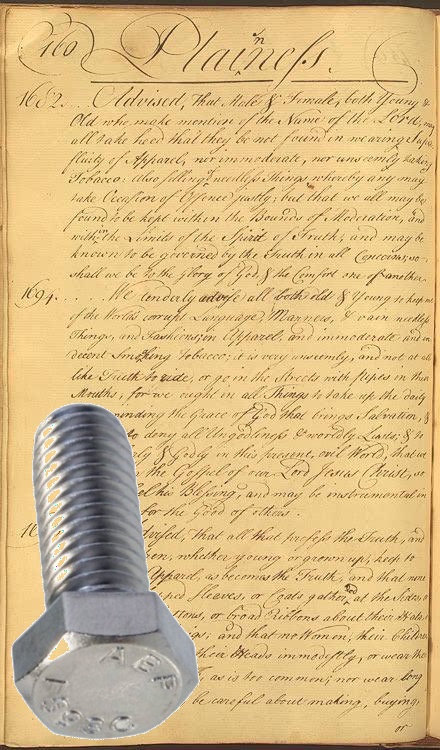 160 Plainness.
1682.. Advised, That Male & Female, both Young &
Old who make mention of the Name of the Lord, may
all take heed that they be not found in wearing Supe
fluity of Apparel, nor immoderate, nor unseemly taking
Tobacco: also selling needless Things whereby any may
take Occasion of Offence justly; but that we all may be
found to be kept within the Bounds of Moderation, and
within the Limits of the Spirit of Truth; and may be
known to be governed by the Truth in all Concerns, so
shall we be to the Glory of God, & the Comfort one of another.
1694. . . . . We tenderly advise all both old & Young to keep out
of the World's corrupt Language, Manners, & vain needless
Things, and Fashions in Apparel; and immoderate and in
decent Smoking Tobacco; it is very unseemly, and not at all
like Truth to ride, or go in the Streets with pipes in their
Mouths; for we ought in all Things to take up the daily
minding the Grace of God that brings Salvation, &
to deny all Ungodliness & worldly Lusts; & to
& Godly in this present, evil World, that we
the Gospel of our Lord Jesus Christ, so
his Blessing, and may be instrumental in
for the Good of others.
that all that profess the Truth, and
whether young or grown up, keep to
Apparel, as becomes the Truth, and that none
Sleeves, or Coats gathered at the Sides, or
or broad Ribbons about their Hats,
and that no Women, their Children
their Heads immodestly, or wear their
as is too common; nor wear long
be careful about making, buying,
or
AEP